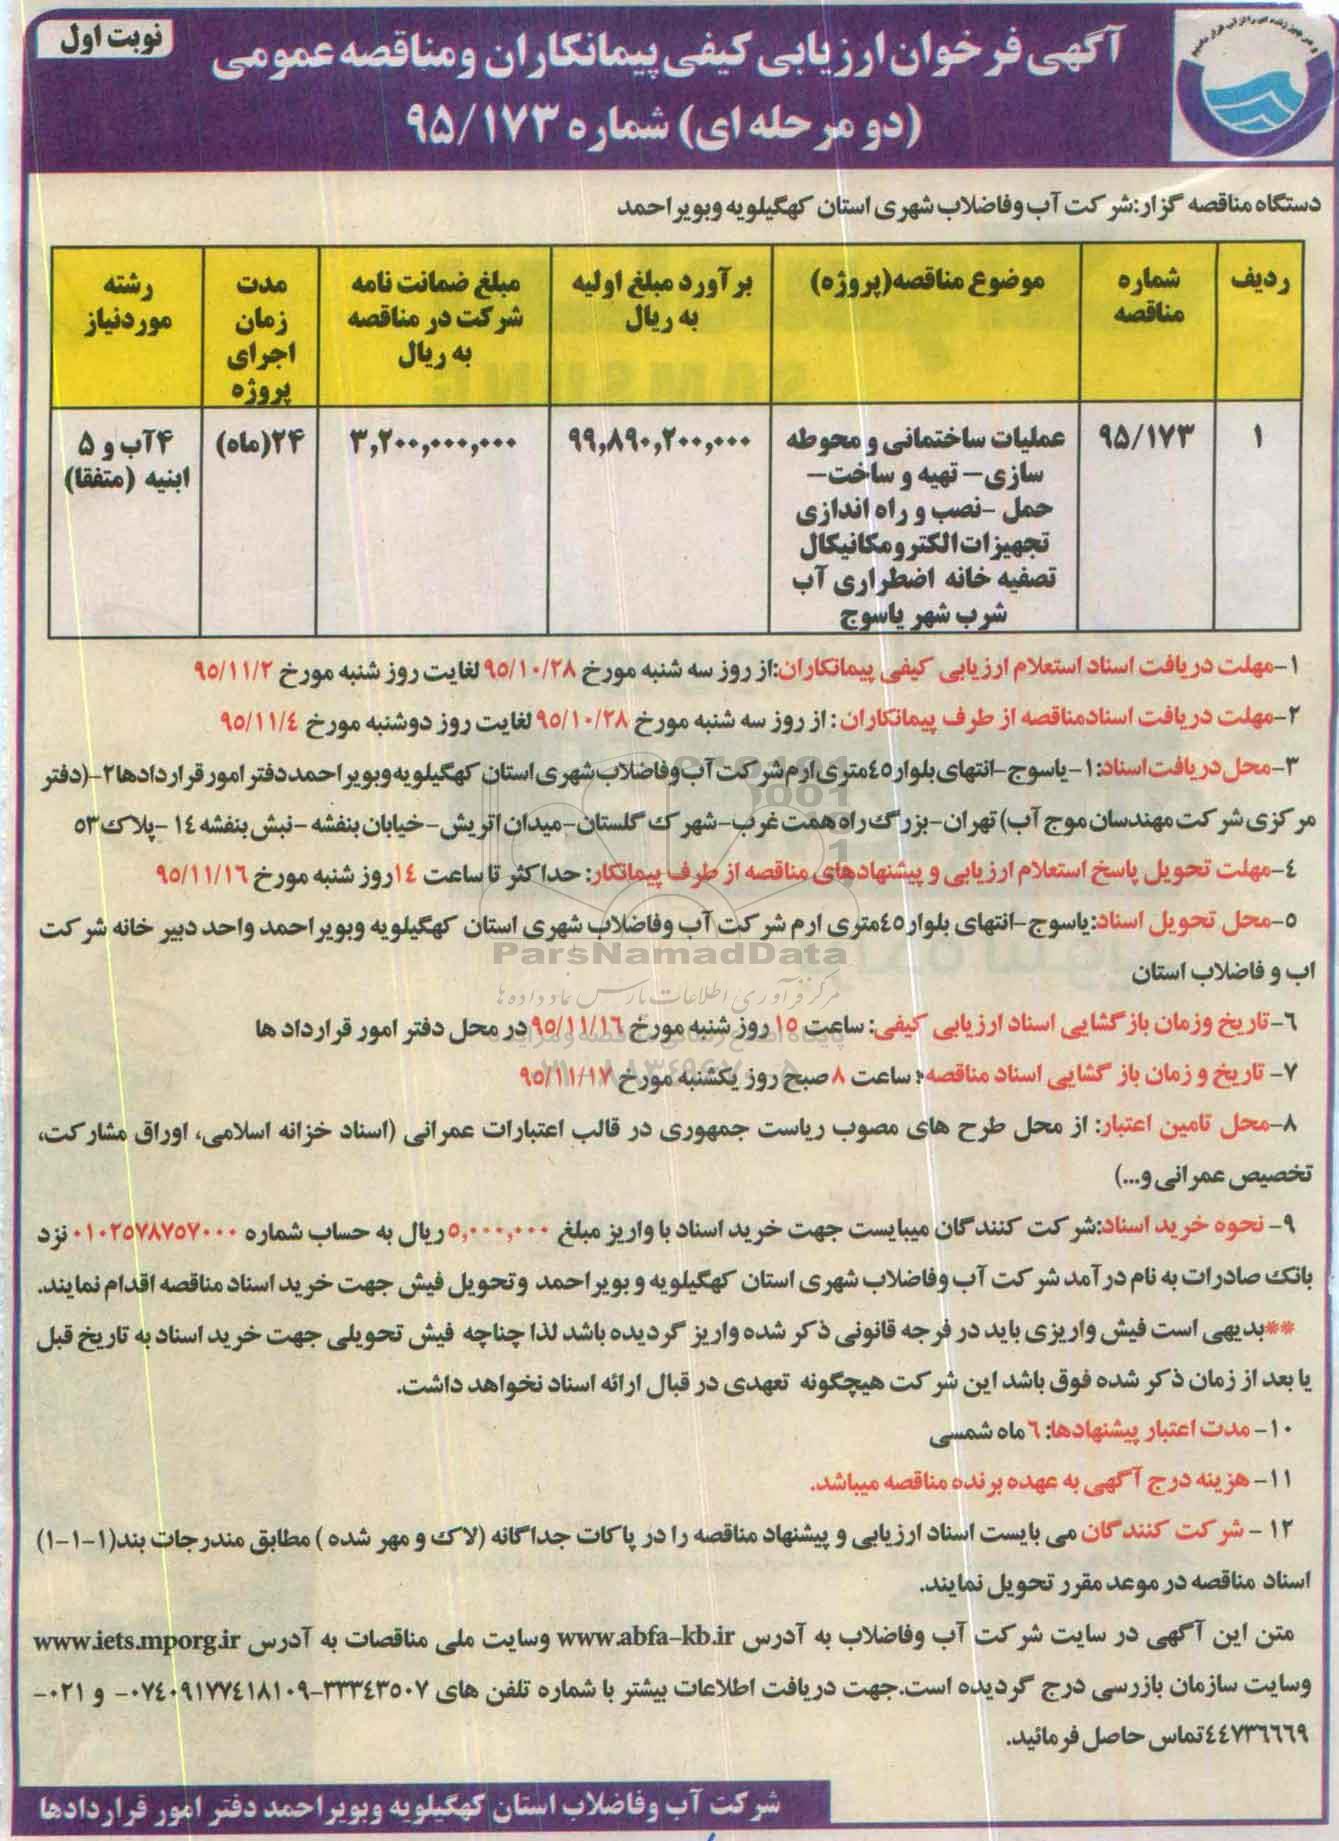 نوبت اول
آگهی فرخوان ارزیابی کیفی پیمانکاران ومناقصه عمومی
(دو مرحله ای) شماره ۹۵/۱۷۳
دستگاه مناقصه گزار:شرکت آب وفاضلاب شهری استان کهگیلویه وبویراحمد
ردیف
شماره
مناقصه
موضوع مناقصه(پروژه)
برآورد مبلغ اولیه
به ریال
مبلغ ضمانت نامه
شرکت در مناقصه
به ریال
مدت
زمان
اجرای
پروژه
رشته
موردنیاز
۱
۹۵/۱۷۳
عملیات ساختمانی و محوطه
سازی– تهیه و ساخت–
حمل -نصب و راه اندازی
تجهیزات الکترومکانیکال
تصفیه خانه اضطراری آب
شرب شهر یاسوج
۹۹,۸۹۰,۲۰۰,۰۰۰
۳,۲۰۰,۰۰۰,۰۰۰
۲۴(ماه)
۴آب و ۵
ابنیه (متفقا)
۱-مهلت دریافت اسناد استعلام ارزیابی کیفی پیمانکاران:از روز سه شنبه مورخ ۹۵/۱۰/۲۸ لغایت روز شنبه مورخ ۹۵/۱۱/۲
۲-مهلت دریافت اسنادمناقصه از طرف پیمانکاران : از روز سه شنبه مورخ ۹۵/۱۰/۲۸ لغایت روز دوشنبه مورخ ۹۵/۱۱/٤
۳-محل دریافت اسناد:۱-یاسوج-انتهای بلوار٤٥متری ارم شرکت آب وفاضلاب شهری استان کهگیلویه وبویراحمد دفتر امور قراردادها۲-(دفتر
مرکزی شرکت مهندسان موج آب) تهران-بزرگ راه همت غرب-شهرک گلستان-میدان اتریش-خیابان بنفشه -نبش بنفشه ۱٤ -پلاک ٥۳
٤-مهلت تحویل پاسخ استعلام ارزیابی و پیشنهادهای مناقصه از طرف پیمانکار: حداکثر تا ساعت ۱٤روز شنبه مورخ ۹۵/۱۱/۱٦
٥-محل تحویل اسناد:یاسوج-انتهای بلوار٤٥متری ارم شرکت آب وفاضلاب شهری استان کهگیلویه وبویراحمد واحد دبیر خانه شرکت
اب و فاضلاب استان
ParsNamadData
مرکز فرآوری اطلاعات پارس نماد داده ها
٦-تاریخ وزمان بازگشایی اسناد ارزیابی کیفی: ساعت ۱٥ روز شنبه مورخ ۹٥/۱۱/۱٦ در محل دفتر امور قرارداد ها
۷- تاریخ و زمان باز گشایی اسناد مناقصه: ساعت ۸ صبح روز یکشنبه مورخ ۹٥/۱۱/۱۷
۸-محل تامین اعتبار: از محل طرح های مصوب ریاست جمهوری در قالب اعتبارات عمرانی (اسناد خزانه اسلامی، اوراق مشارکت،
تخصیص عمرانی و...)
۹- نحوه خرید اسناد:شرکت کنندگان میبایست جهت خرید اسناد با واریز مبلغ ٥,۰۰۰,۰۰۰ ریال به حساب شماره ۰۱۰۲٥۷۸۷٥۷۰۰۰ نزد
بانک صادرات به نام درآمد شرکت آب وفاضلاب شهری استان کهگیلویه و بویراحمد وتحویل فیش جهت خرید اسناد مناقصه اقدام نمایند.
**بدیهی است فیش واریزی باید در فرجه قانونی ذکر شده واریز گردیده باشد لذا چناچه فیش تحویلی جهت خرید اسناد به تاریخ قبل
یا بعد از زمان ذکر شده فوق باشد این شرکت هیچگونه تعهدی در قبال ارائه اسناد نخواهد داشت.
۱۰- مدت اعتبار پیشنهادها: ٦ ماه شمسی
۱۱- هزینه درج آگهی به عهده برنده مناقصه میباشد.
۱۲ - شرکت کنندگان می بایست اسناد ارزیابی و پیشنهاد مناقصه را در پاکات جداگانه (لاک و مهر شده ) مطابق مندرجات بند(۱-۱-۱)
اسناد مناقصه در موعد مقرر تحویل نمایند.
متن این آگهی در سایت شرکت آب وفاضلاب به آدرس www.abfa-kb.ir وسایت ملی مناقصات به آدرس www.iets.mporg.ir
وسایت سازمان بازرسی درج گردیده است.جهت دریافت اطلاعات بیشتر با شماره تلفن های ۰۷٤-۳۳۳٤۳٥۰۷-۰۹۱۷۷٤۱۸۱۰۹ و ۰۲۱-
٤٤۷۳٦٦٦۹تماس حاصل فرمائید.
شرکت آب وفاضلاب استان کهگیلویه وبویراحمد دفتر امور قراردادها